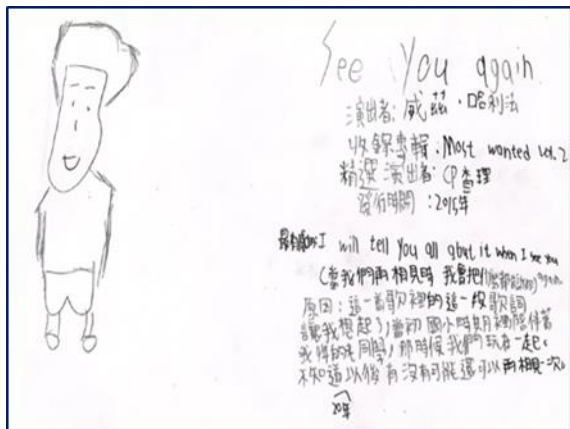 See You again
演出者:威茲·哈利法
收錄專輯:Most wanted vol.2
精選演出者:CP查理
發行時間:2015年
I will tell You all abut it when I see you
again
(當我們再相見時 我會把
原因:這一首歌裡的這一段歌詞
讓我想起了,當初國小時期裡陪伴著
我的老同學,那時候我們玩在一起。
不知道以後有沒有可能還可以再相見一次。
20年